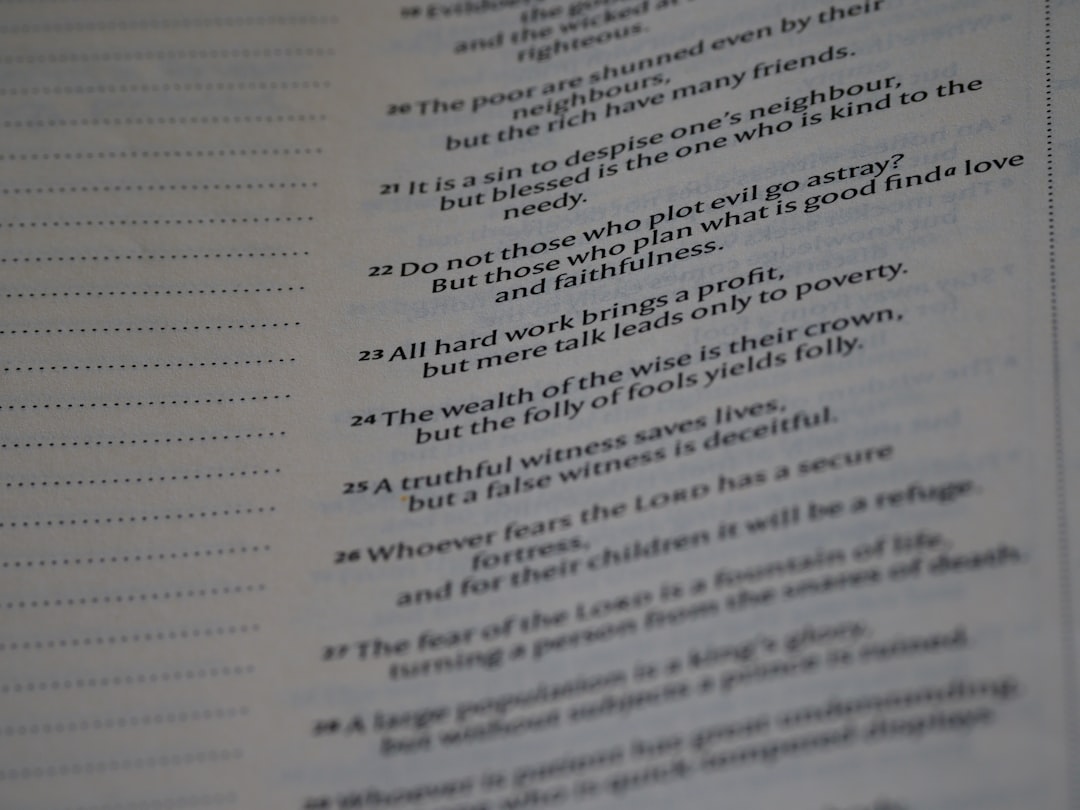 19 Evildoers
the good
and the wicked at
righteous.
20 The poor are shunned even by their
neighbours,
but the rich have many friends.
21 It is a sin to despise one's neighbour,
but blessed is the one who is kind to the
needy.
22 Do not those who plot evil go astray?
But those who plan what is good find a love
and faithfulness.
23 All hard work brings a profit,
but mere talk leads only to poverty.
24 The wealth of the wise is their crown,
but the folly of fools yields folly.
25 A truthful witness saves lives,
but a false witness is deceitful.
26 Whoever fears the LORD has a secure
fortress,
and for their children it will be a refuge.
27 The fear of the LORD is a fountain of life,
turning a person from the snares of death.
28 A large population is a king's glory,
but without subjects a prince is ruined.
29 Whoever is patient has great understanding,
who is quick-tempered displays